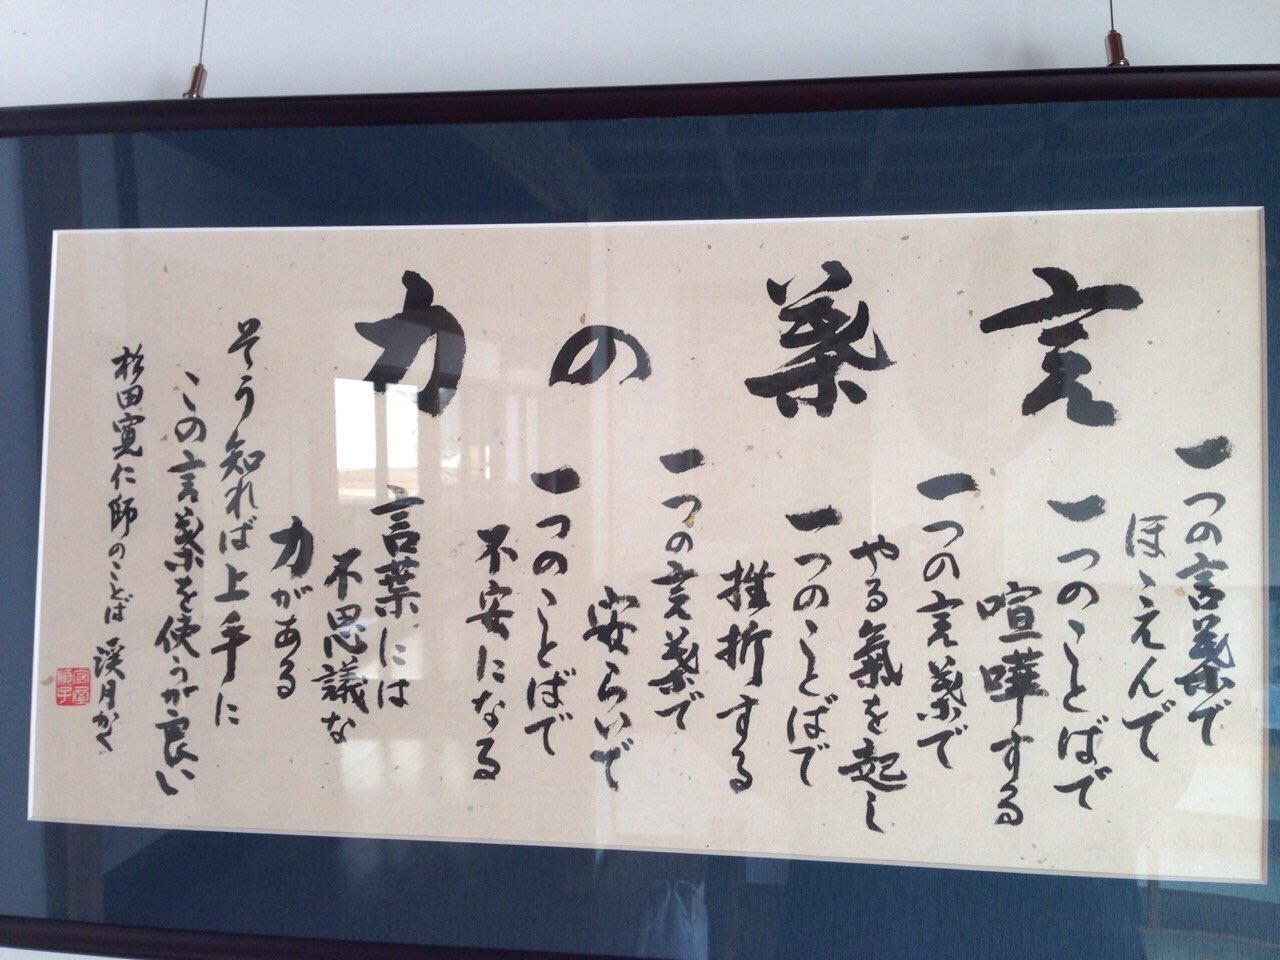 言葉の力
一つの言葉で
ほゝえんで
一つのことばで
喧嘩する
一つの言葉で
やる氣を起し
一つのことばで
挫折する
一つの言葉で
安らいで
一つのことばで
不安になる
言葉には
不思議な
力がある
そう知れば上手に
この言葉を使うが良い
杉田寛仁師のことば 渓月かく